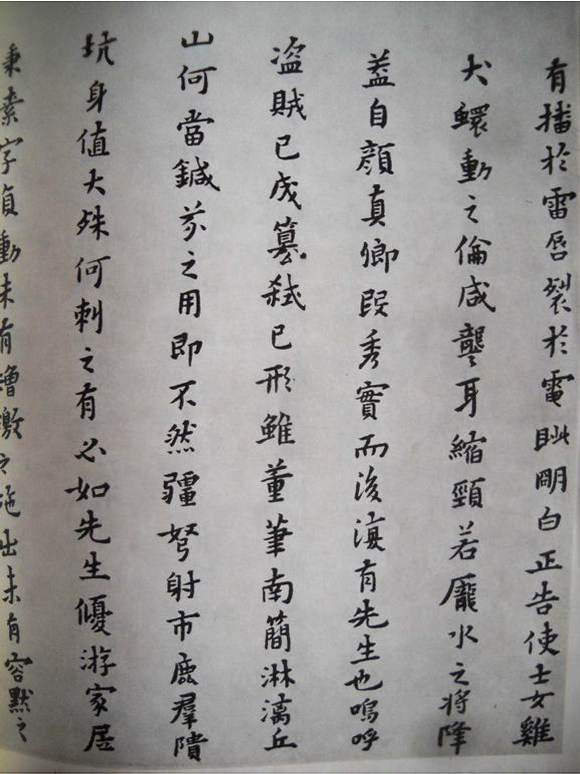 有播於雷唇裂於電眦明白正告使士女雞
犬蠉動之倫咸聾耳縮頸若龎水之將降
蓋自顔真卿段秀實而後復有先生也嗚呼
盗賊已成篡弑已形雖董筆南簡淋漓丘
山何當鍼芥之用即不然疆弩射市鹿羣隤
坑身值大殊何刺之有必如先生優游家居
秉素字貞動未有增繳之施出未有容默之